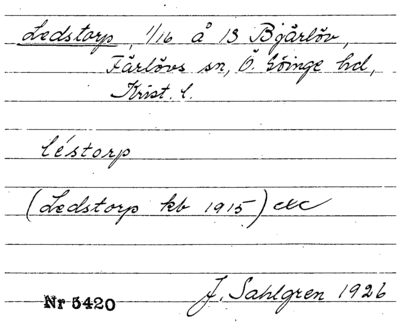 Ledstorp, 1/16 å 13 Bjärlöv,
Färlövs sn, Ö. Göinge hd,
Krist. l.
léstorp
(Ledstorp kb 1915)
J. Sahlgren 1926
Nr 5420